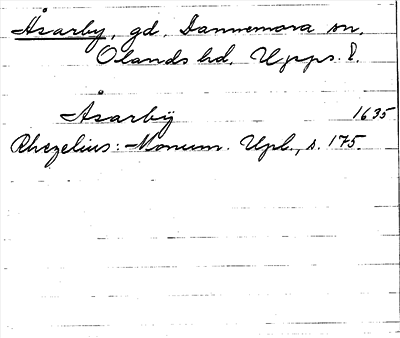 Åsarby, gd, Dannemora sn,
Olands hd, Upps. l.
Åsarbÿ 1635
Rhezelius: Monum. Upl., s. 175.